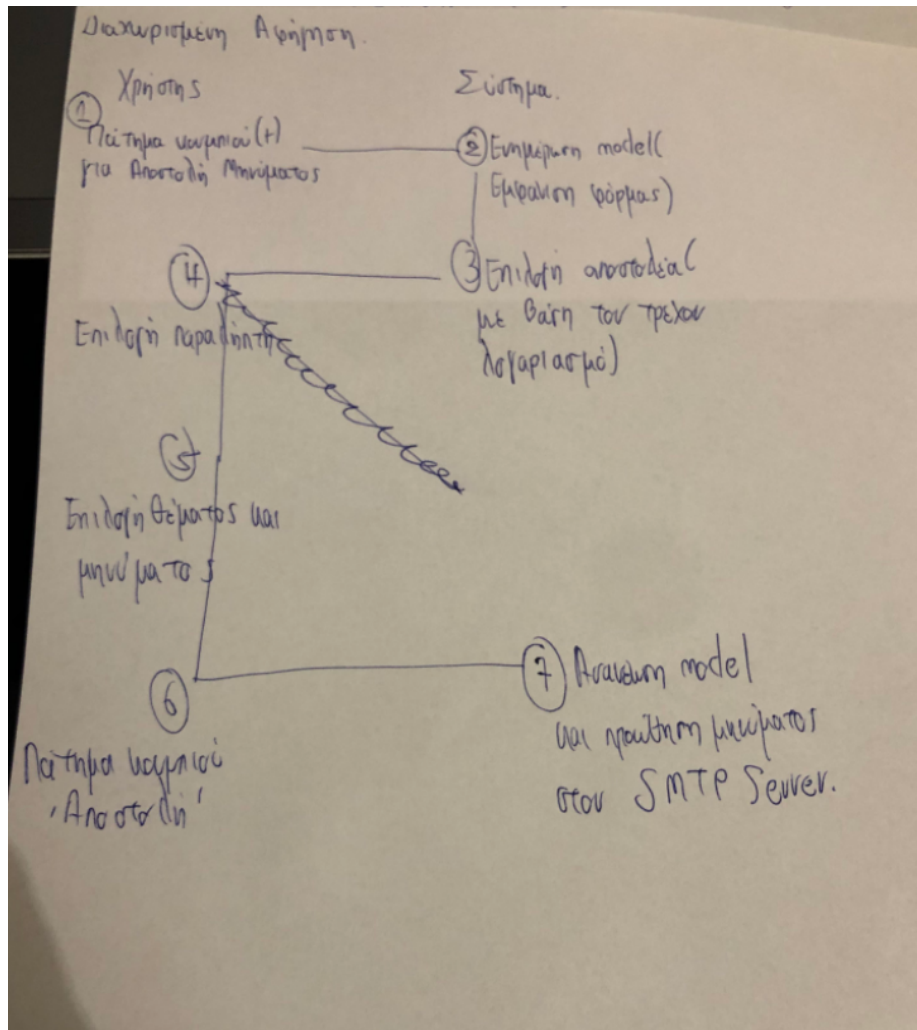 Διαχωρισμένη Αφήγηση.
Χρήστης
Σύστημα.
1
Πάτημα κουμπιού (+)
για Αποστολή Μηνύματος
2 Ενημέρωση model(
Εμφάνιση φόρμας)
3 Επιλογή αποστολέα(
με βάση τον τρέχον
λογαριασμό)
4
Επιλογή παραλήπτη
5
Επιλογή θέματος και
μηνύματος
6
Πάτημα κουμπιού
'Αποστολή'
7 Ανανέωση model
και προώθηση μηνύματος
στον SMTP Server.